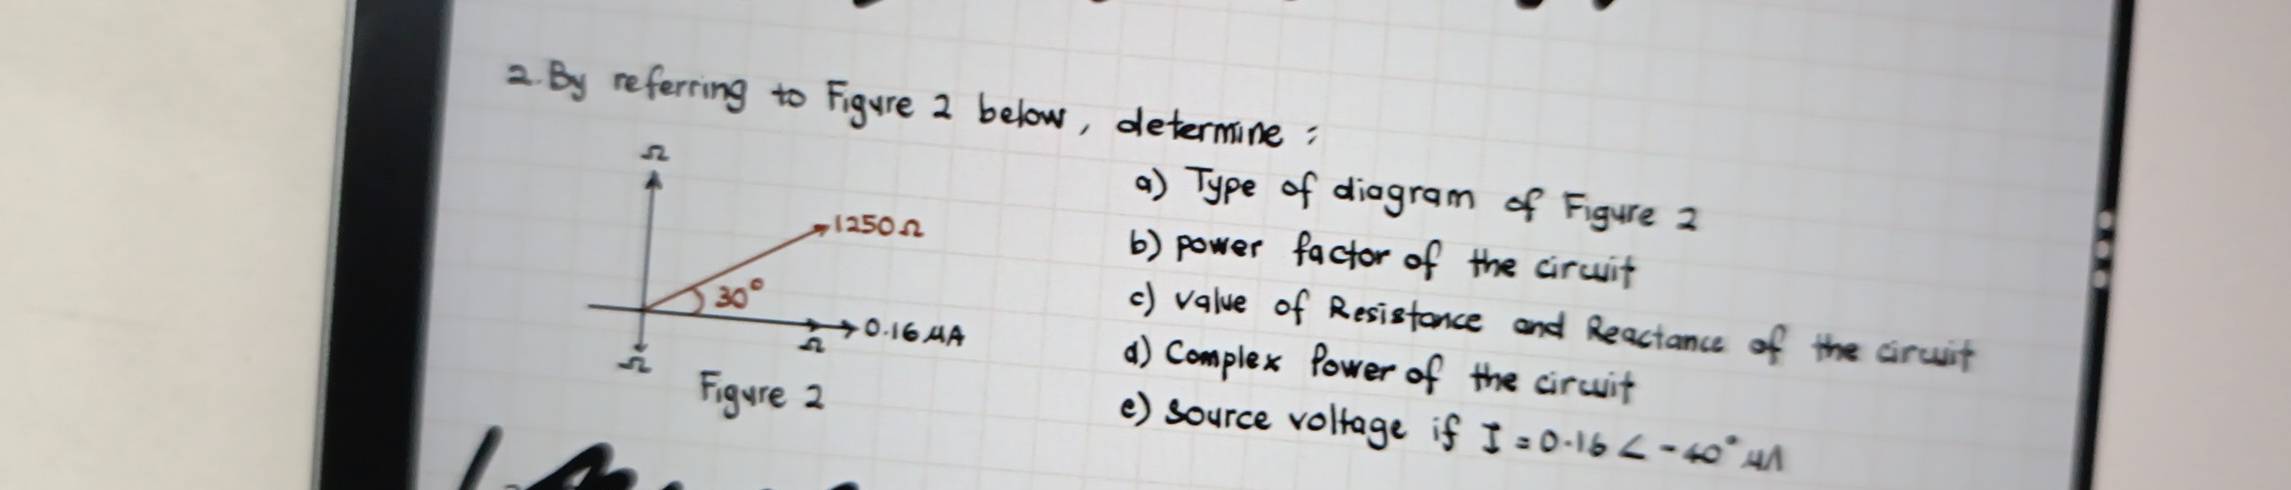 2. By referring to Figure 2 below, determine :
Ω
a) Type of diagram of Figure 2
1250Ω
b) power factor of the circuit
30°
c) value of Resistance and Reactance of the circuit
0.16 μA
Ω
Ω
d) Complex Power of the circuit
Figure 2
e) source voltage if I = 0.16 ∠ -40° μA